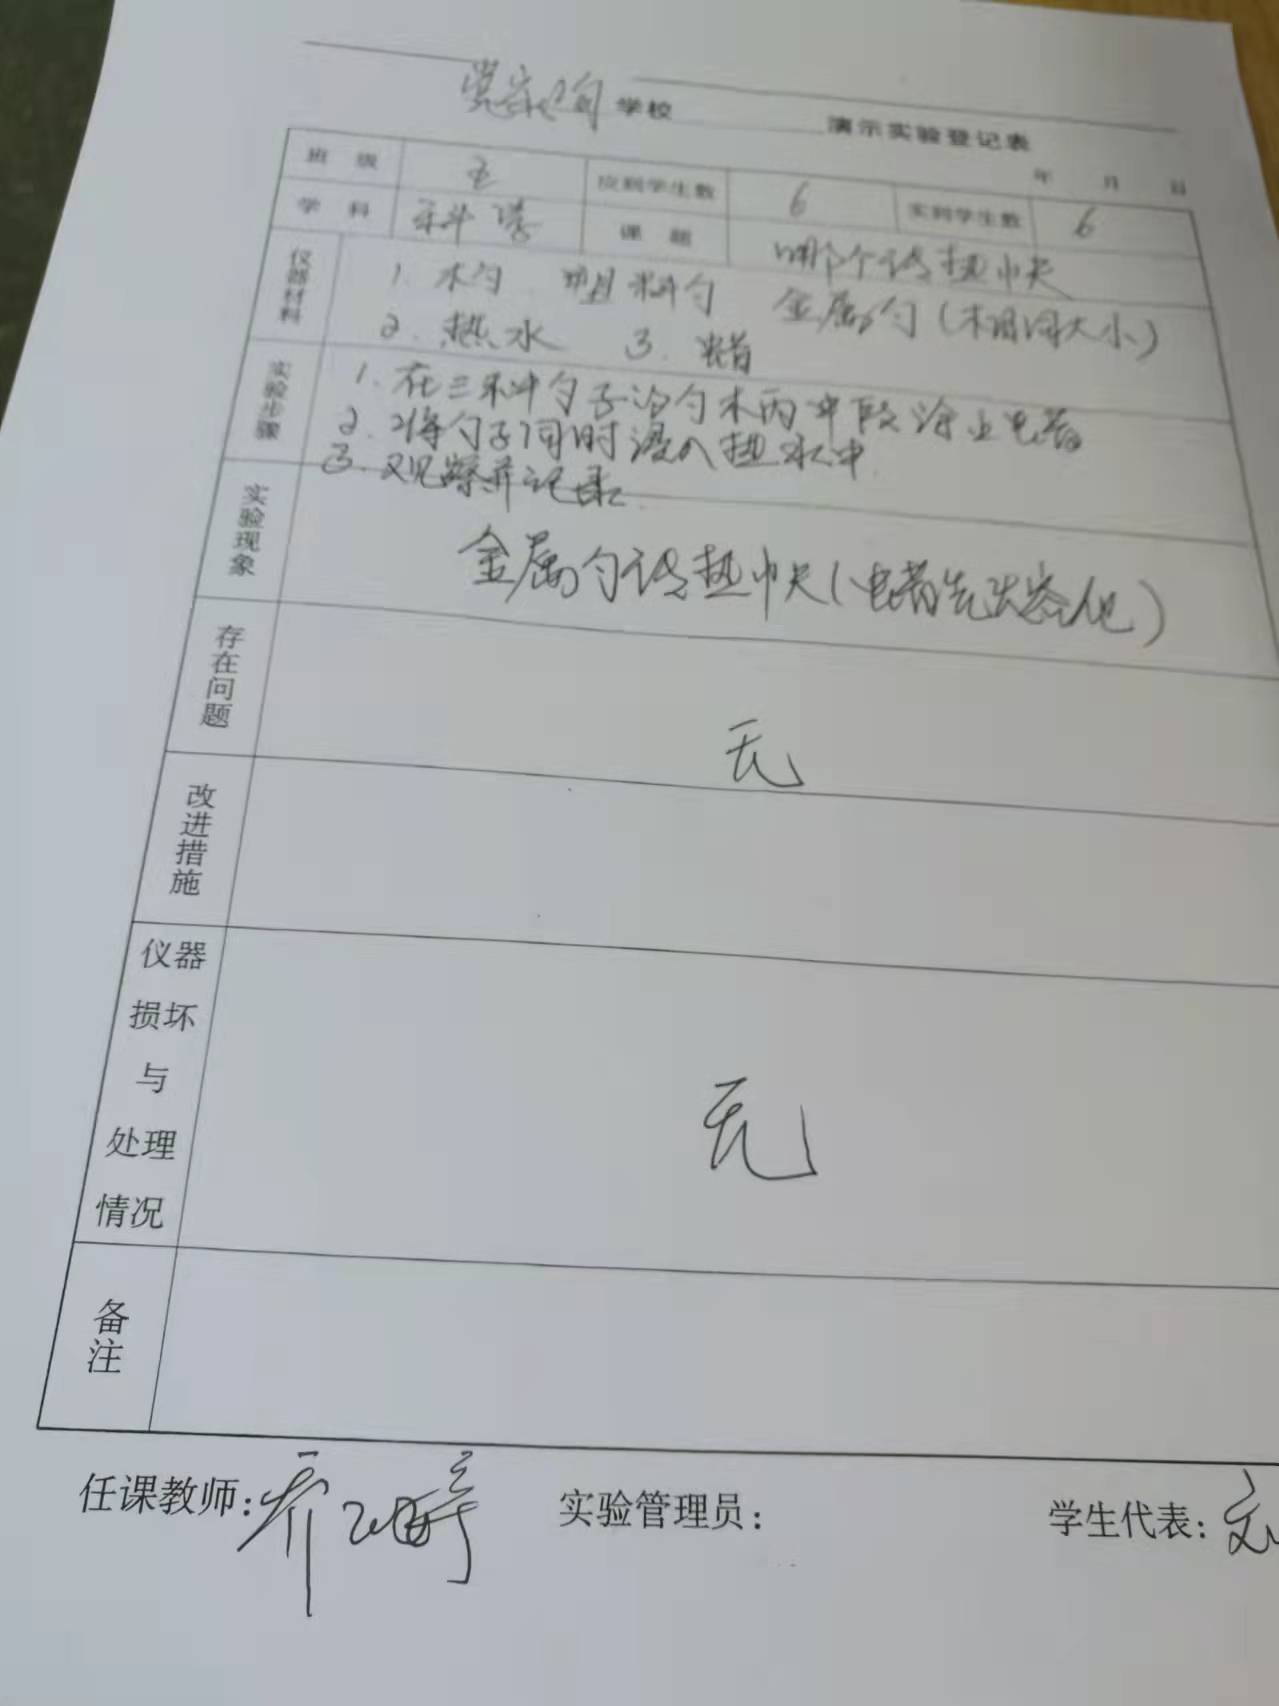 学校 演示实验登记表
年 月 日
班 级 五 应到学生数 6 实到学生数 6
学 科 科学 课 题 哪个传热快
仪器材料 1. 木勺 塑料勺 金属勺(相同大小)
2. 热水 3. 蜡
实验步骤 1. 在三种勺子的勺柄中段涂上蜡
2. 将勺子同时浸入热水中
3. 观察并记录
实验现象 金属勺传热快(蜡先熔化)
存在问题 无
改进措施
仪器损坏与处理情况 无
备注
任课教师: 乔 实验管理员: 学生代表: